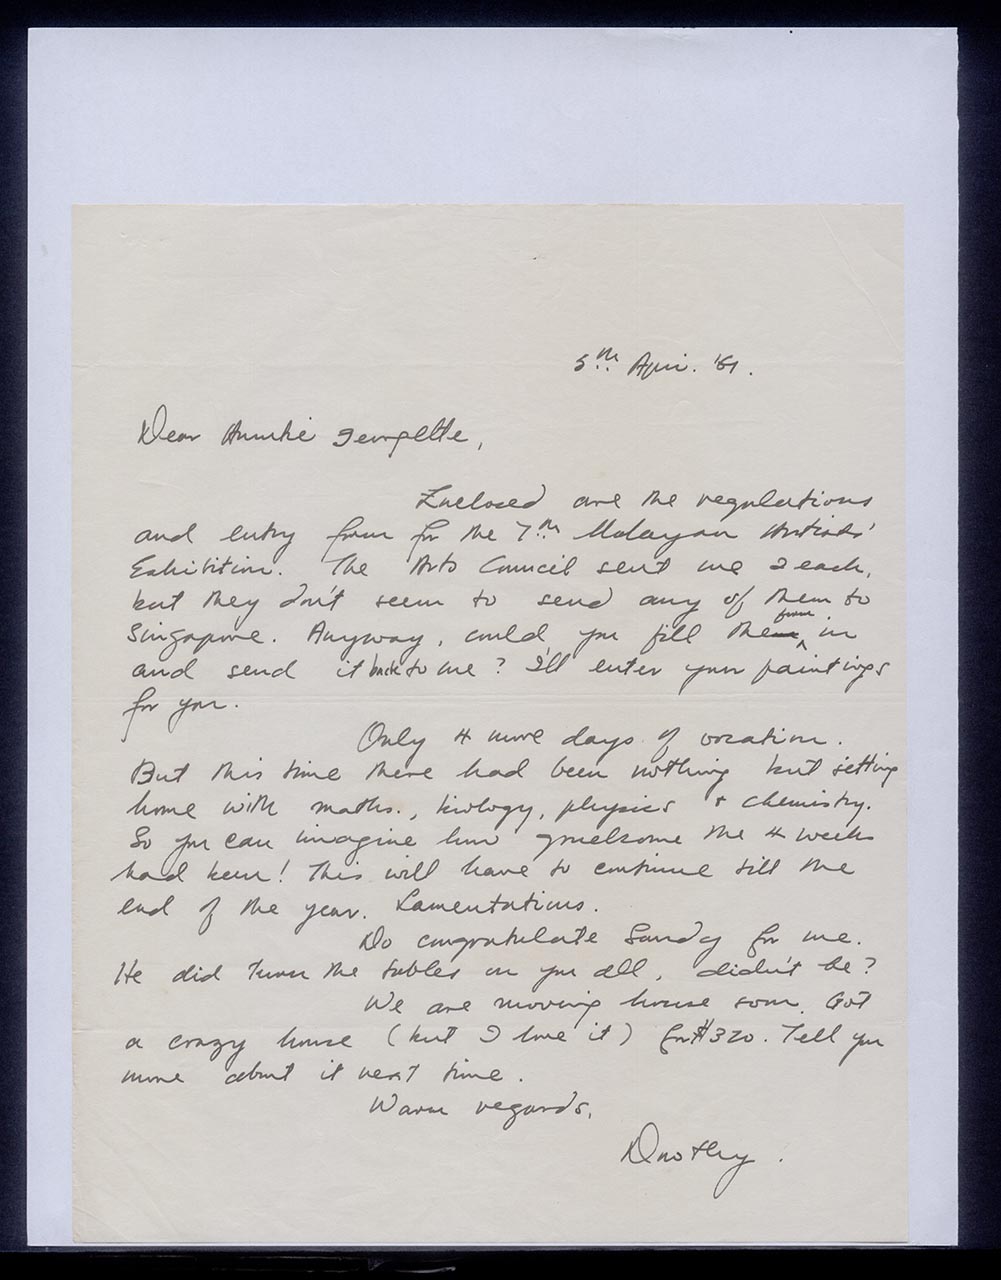 5th Apri. '61.
Dear Auntie Georgette,
Enclosed are the regulations
and entry form for the 7th Malayan Artists'
Exhibition. The Arts Council sent me 2 each,
but they don't seem to send any of them to
Singapore. Anyway, could you fill the form in
and send it back to me? I'll enter your paintings
for you.
Only 4 more days of vacation.
But this time there had been nothing but sitting
home with maths., biology, physics & chemistry.
So you can imagine how gruelsome the 4 weeks
had been! This will have to continue till the
end of the year. Lamentations.
Do congratulate Sandy for me.
He did turn the tables on you all, didn't he?
We are moving house soon. Got
a crazy house (but I love it) for $320. Tell you
more about it next time.
Warm regards,
Dorothy.